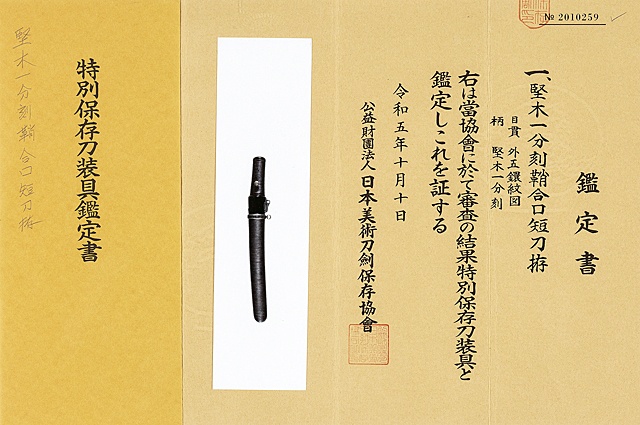 № 2010259
鑑定書
一、堅木一分刻鞘合口短刀拵
目貫 外五鐶紋図
柄 堅木一分刻
右は當協會に於て審査の結果特別保存刀装具と
鑑定しこれを証する
令和五年十月十日
公益財團法人 日本美術刀劍保存協會
特別保存刀装具鑑定書
堅木一分刻鞘合口短刀拵